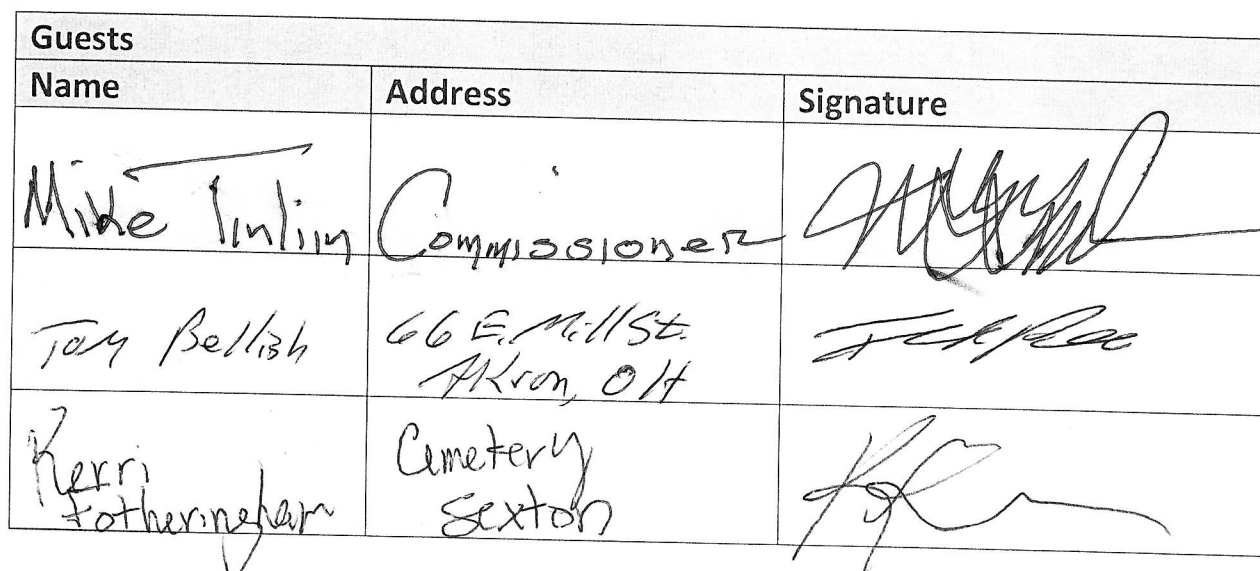 Guests
Name Address Signature
Mike Tinlin Commissioner
Tom Bellish 66 E. Mill St.
Akron, OH
Kerri Cemetery
Fotheringham Sexton